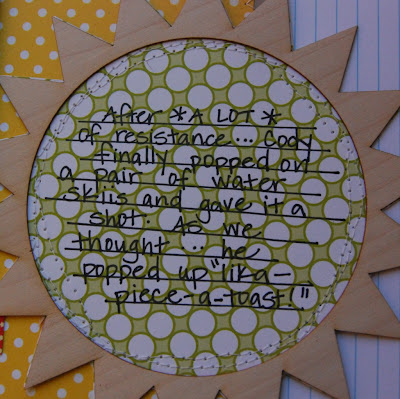 After *A LOT*
of resistance... Cody
finally popped on
a pair of water
skiis and gave it a
shot. As we
thought... he
popped up "lika-
piece-a-toast!"